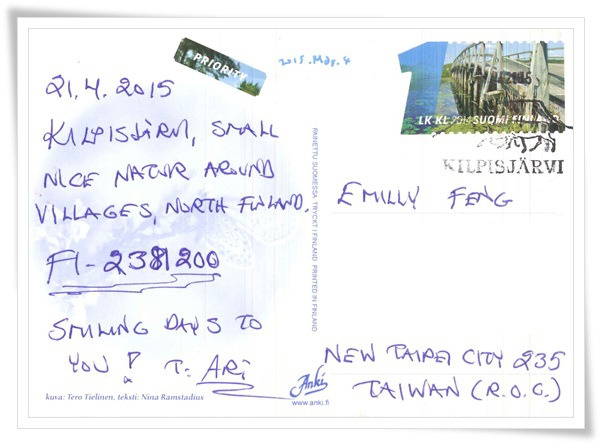 PRIORITY
2015.May.4
21.4.2015
KILPISJÄRVI, SMALL
NICE NATUR AROUND
VILLAGES, NORTH FINLAND.
FI-2381200
SMILING DAYS TO
YOU! T: ARI
kuva: Tero Tielinen, teksti: Nina Ramstadius
PAINETTU SUOMESSA TRYCKT I FINLAND PRINTED IN FINLAND
Anki
www.anki.fi
1
LK KL 2014 SUOMI FINLAND
KILPISJÄRVI
EMILLY FENG
NEW TAIPEI CITY 235
TAIWAN (R.O.C.)